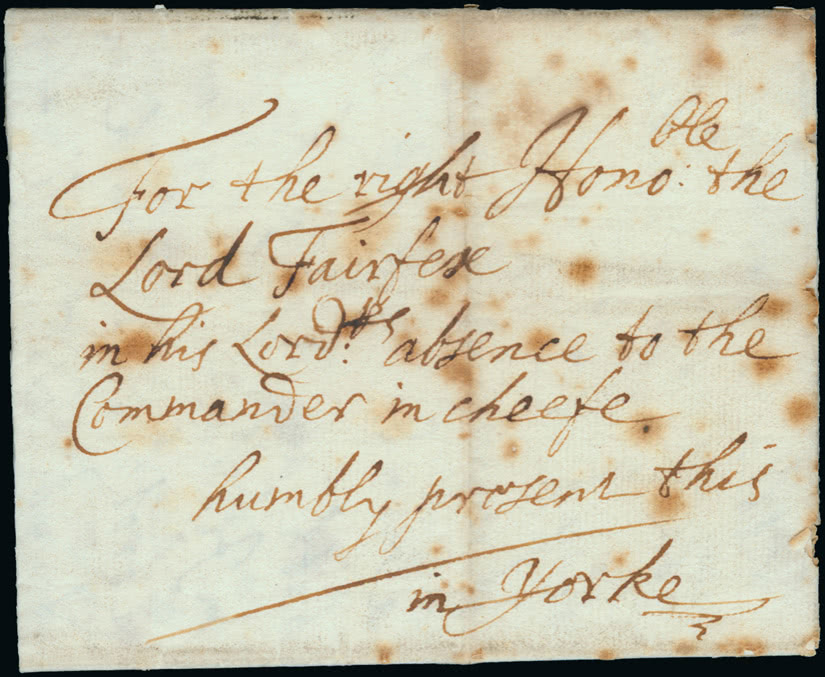 For the right Hono:ble the
Lord Fairfex
in his Lord:ps absence to the
Commander in cheefe.
humbly present this
in Yorke